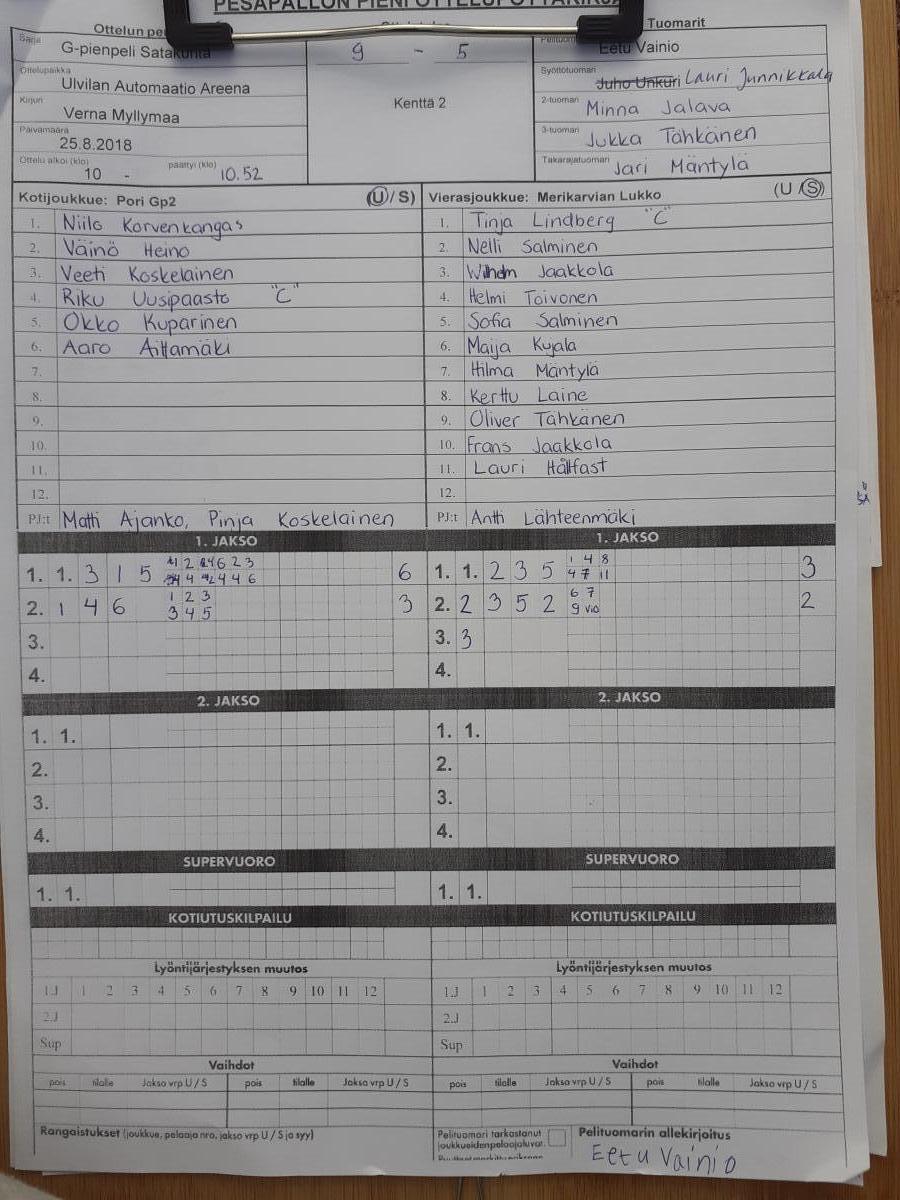 PESÄPALLON PIENI OTTELUPÖYTÄKIRJA
Ottelun
Tuomarit
Sarja
G-pienpeli Satakunta
9 - 5
Eetu Vainio
Ottelupaikka
Ulvilan Automaatio Areena
Syöttötuomari
Juho Unkuri Lauri Junnikkala
Kirjuri
Verna Myllymaa
Kenttä 2
2-tuomari
Minna Jalava
Päivämäärä
25.8.2018
3-tuomari
Jukka Tähkänen
Ottelu alkoi (klo) päättyi (klo)
10 - 10.52
Takarajatuomari
Jari Mäntylä
Kotijoukkue: Pori Gp2 (U / S)
Vierasjoukkue: Merikarvian Lukko (U / S)
1. Niilo Korvenkangas
1. Tinja Lindberg "C"
2. Väinö Heino
2. Nelli Salminen
3. Veeti Koskelainen
3. Jaakkola
4. Riku Uusipaasto "C"
4. Helmi Toivonen
5. Okko Kuparinen
5. Sofia Salminen
6. Aaro Aittamäki
6. Maija Kujala
7.
7. Hilma Mäntylä
8.
8. Kerttu Laine
9.
9. Oliver Tähkänen
10.
10. Frans Jaakkola
11.
11. Lauri Hållfast
12.
12.
PJ:t Matti Ajanko, Pinja Koskelainen
PJ:t Antti Lähteenmäki
1. JAKSO
1. JAKSO
1. 1. 3 1 5 6
1. 1. 2 3 5 1 4 8 3
4 7 11
2. 1 4 6 1 2 3 3
3 4 5
2. 2 3 5 2 6 7 2
9 v10
3.
3. 3
4.
4.
2. JAKSO
2. JAKSO
1. 1.
1. 1.
2.
2.
3.
3.
4.
4.
SUPERVUORO
SUPERVUORO
1. 1.
1. 1.
KOTIUTUSKILPAILU
KOTIUTUSKILPAILU
Lyöntijärjestyksen muutos
Lyöntijärjestyksen muutos
1.J 1 2 3 4 5 6 7 8 9 10 11 12
1.J 1 2 3 4 5 6 7 8 9 10 11 12
2.J
2.J
Sup
Sup
Vaihdot
Vaihdot
pois tilalle Jakso vrp U / S pois tilalle Jakso vrp U / S
pois tilalle Jakso vrp U / S pois tilalle Jakso vrp U / S
Rangaistukset (joukkue, pelaaja nro, jakso vrp U / S ja syy)
Pelituomari tarkastanut
joukkueidenpelaajaluvat.
Pelituomarin allekirjoitus
Eetu Vainio